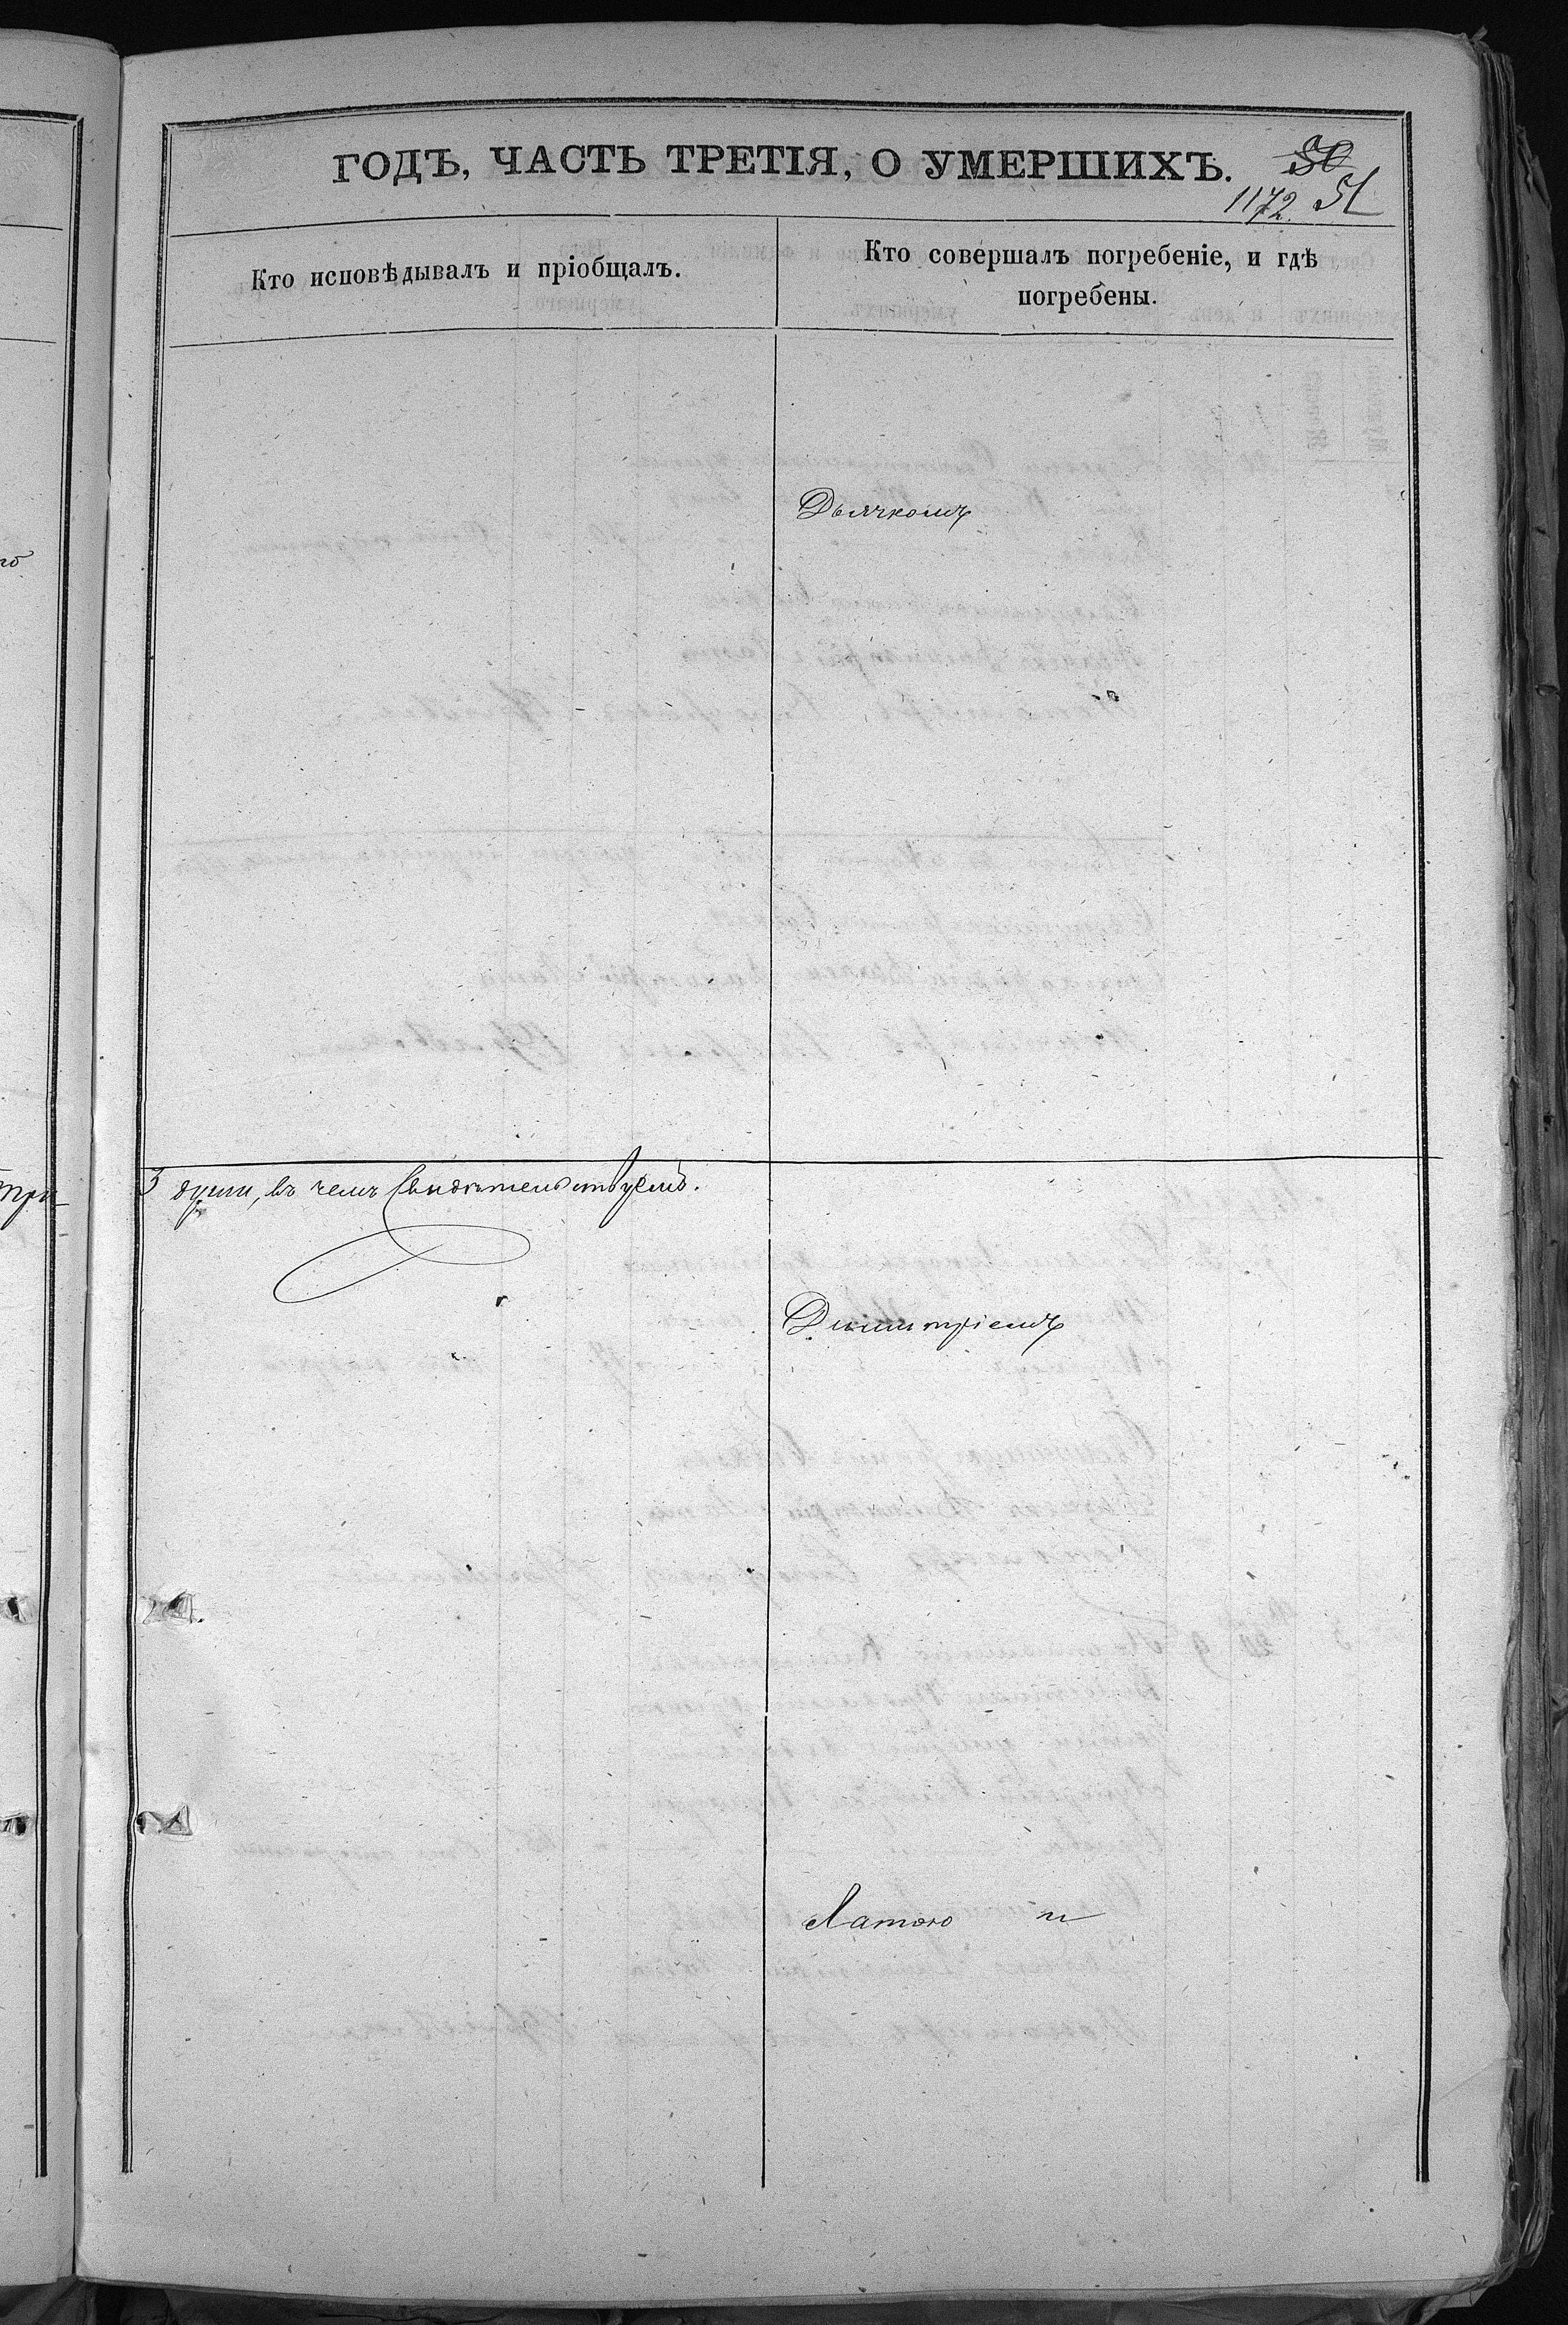 ГОДЪ, ЧАСТЬ ТРЕТІЯ, О УМЕРШИХЪ.
1172. 51
Кто исповѣдывалъ и пріобщалъ.
Кто совершалъ погребеніе, и гдѣ
погребены.
Дьячкомъ
3 души, въ чемъ свидѣтельствуемъ.
Димитріемъ
Латою и